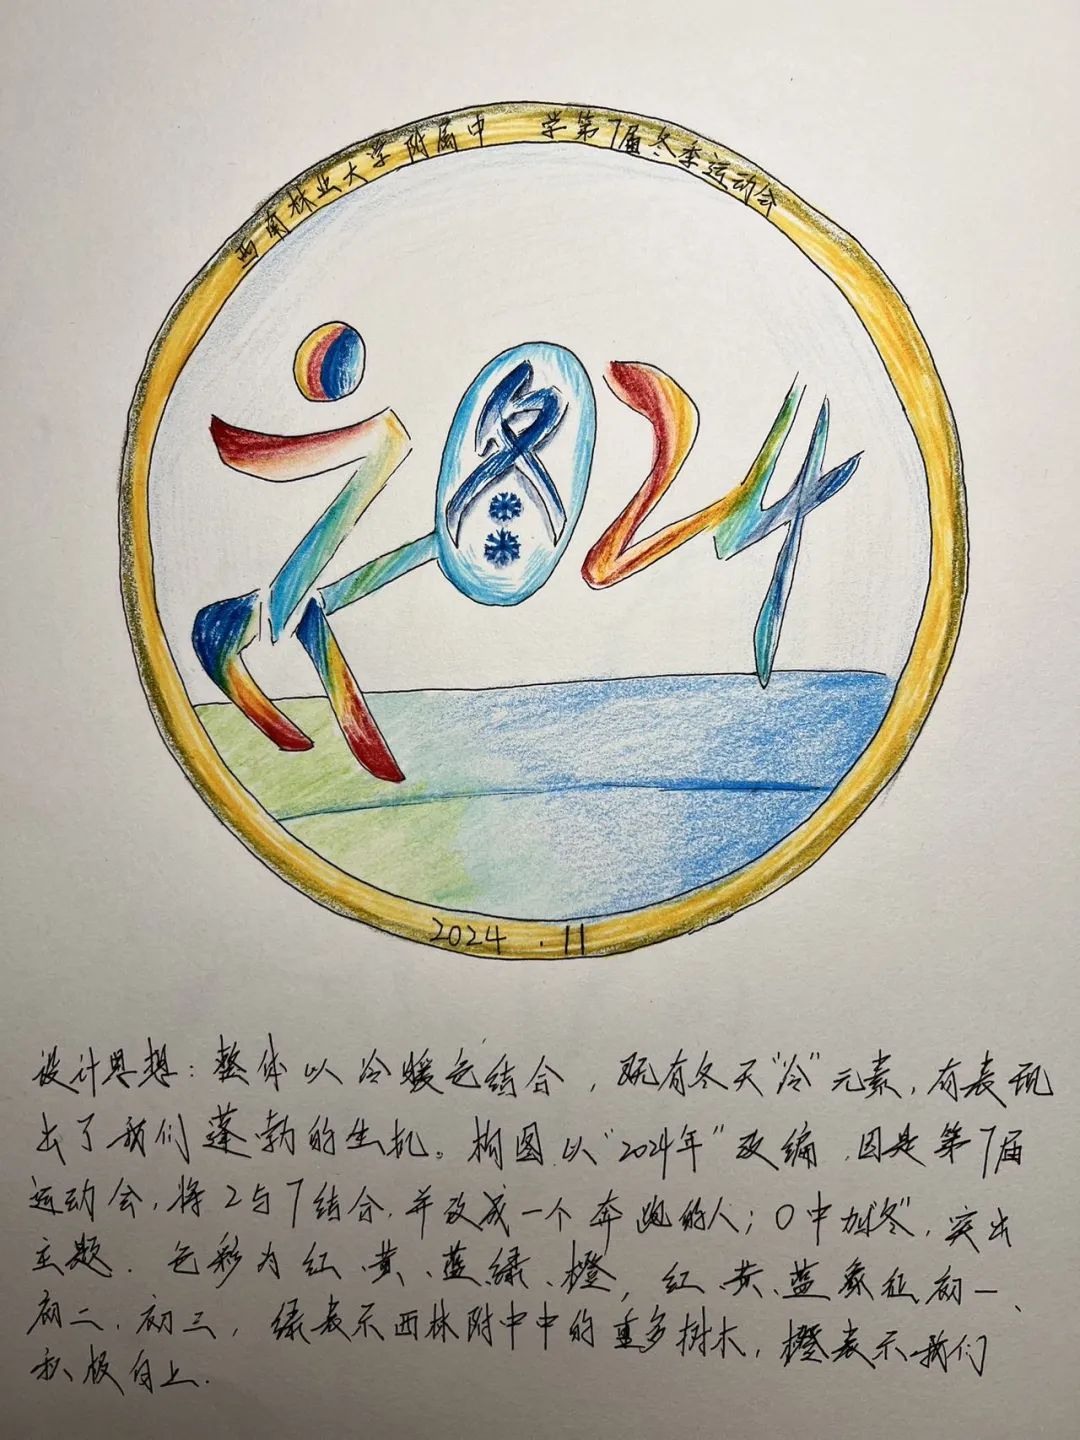 西南林业大学附属中 学第7届冬季运动会
2024
冬
2024 . 11
设计思想：整体以冷暖色结合，既有冬天“冷”元素，有表现
出了我们蓬勃的生机。构图以“2024年”改编，因是第7届
运动会，将2与7结合，并改成一个奔跑的人；0中加“冬”，突出
主题．色彩为红、黄、蓝、绿、橙，红、黄、蓝象征初一、
初二、初三，绿表示西林附中中的重多树木，橙表示我们
积极向上．